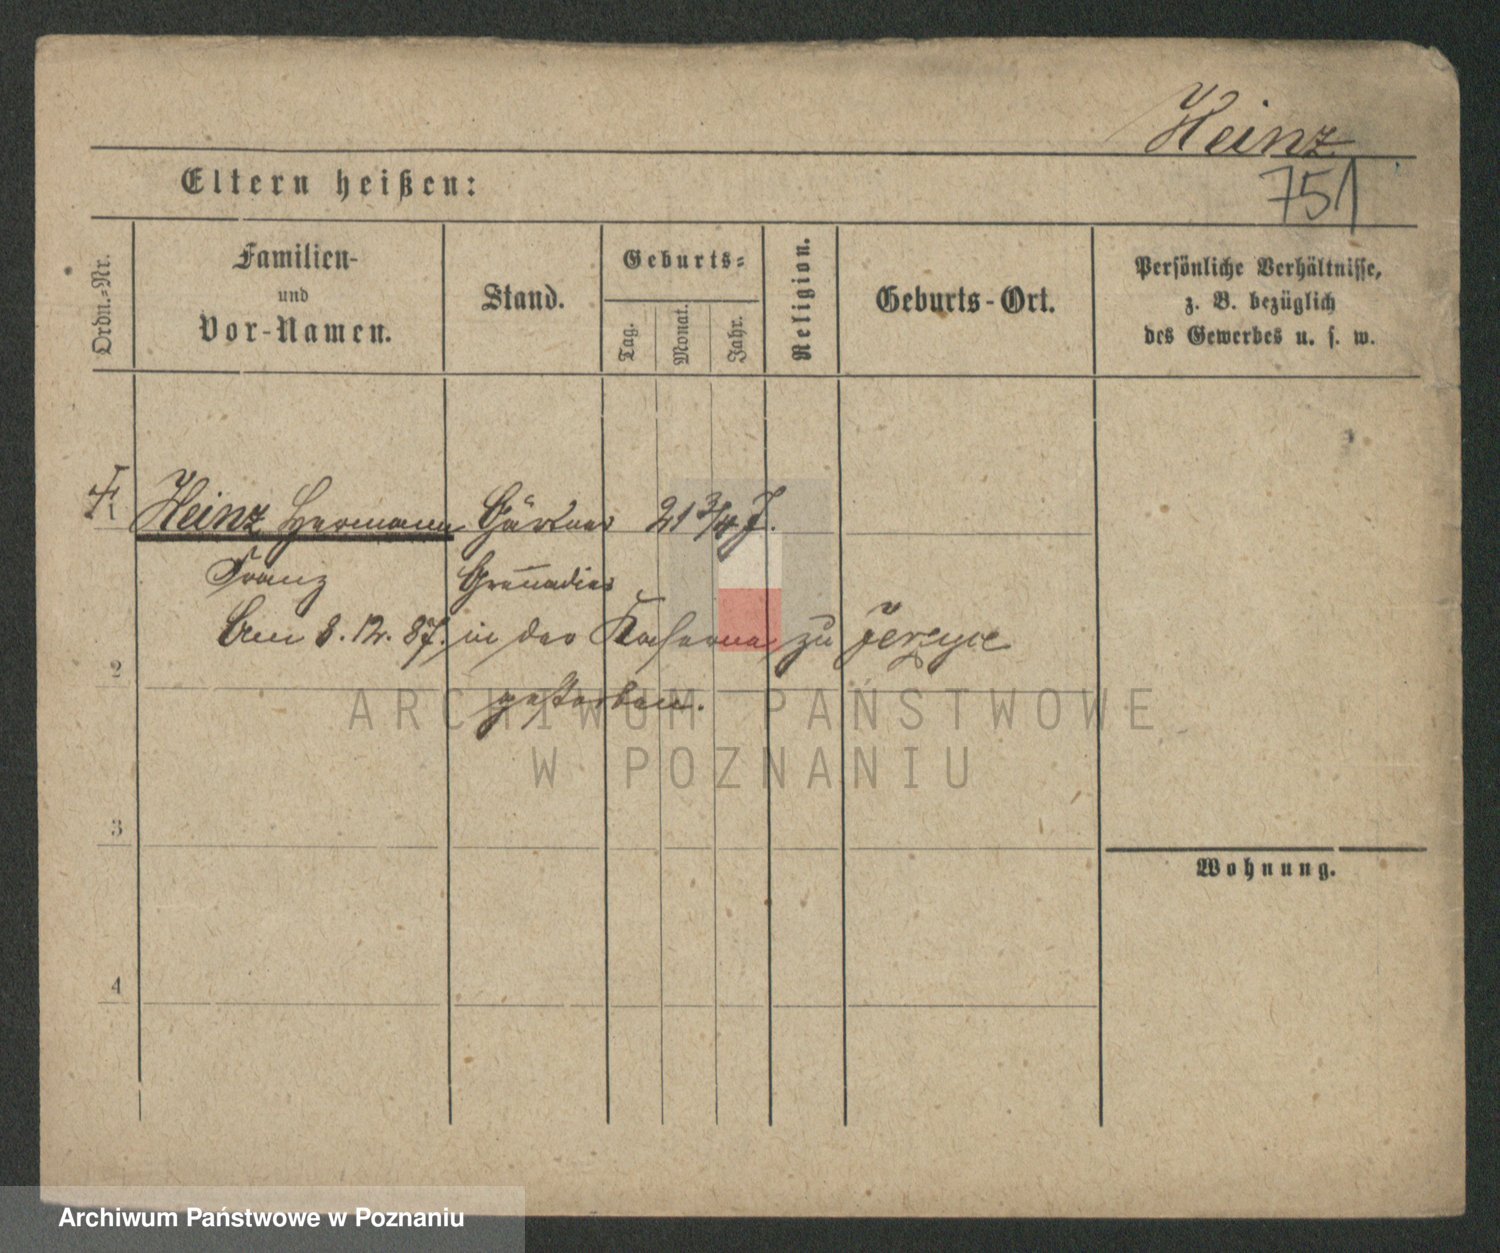 Heinz
Eltern heißen:
751
Ordn.-Nr.
Familien-
und
Vor-Namen.
Stand.
Geburts-
Tag.
Monat.
Jahr.
Religion.
Geburts-Ort.
Persönliche Verhältnisse,
z. B. bezüglich
des Gewerbes u. s. w.
1 Heinz Hermann Gärtner 21 3/4 J.
Franz Grenadier
Am 8. 12. 87. in der Kaserne zu Jerzyce
2
gestorben.
ARCHIWUM PAŃSTWOWE
W POZNANIU
3
Wohnung.
4
Archiwum Państwowe w Poznaniu